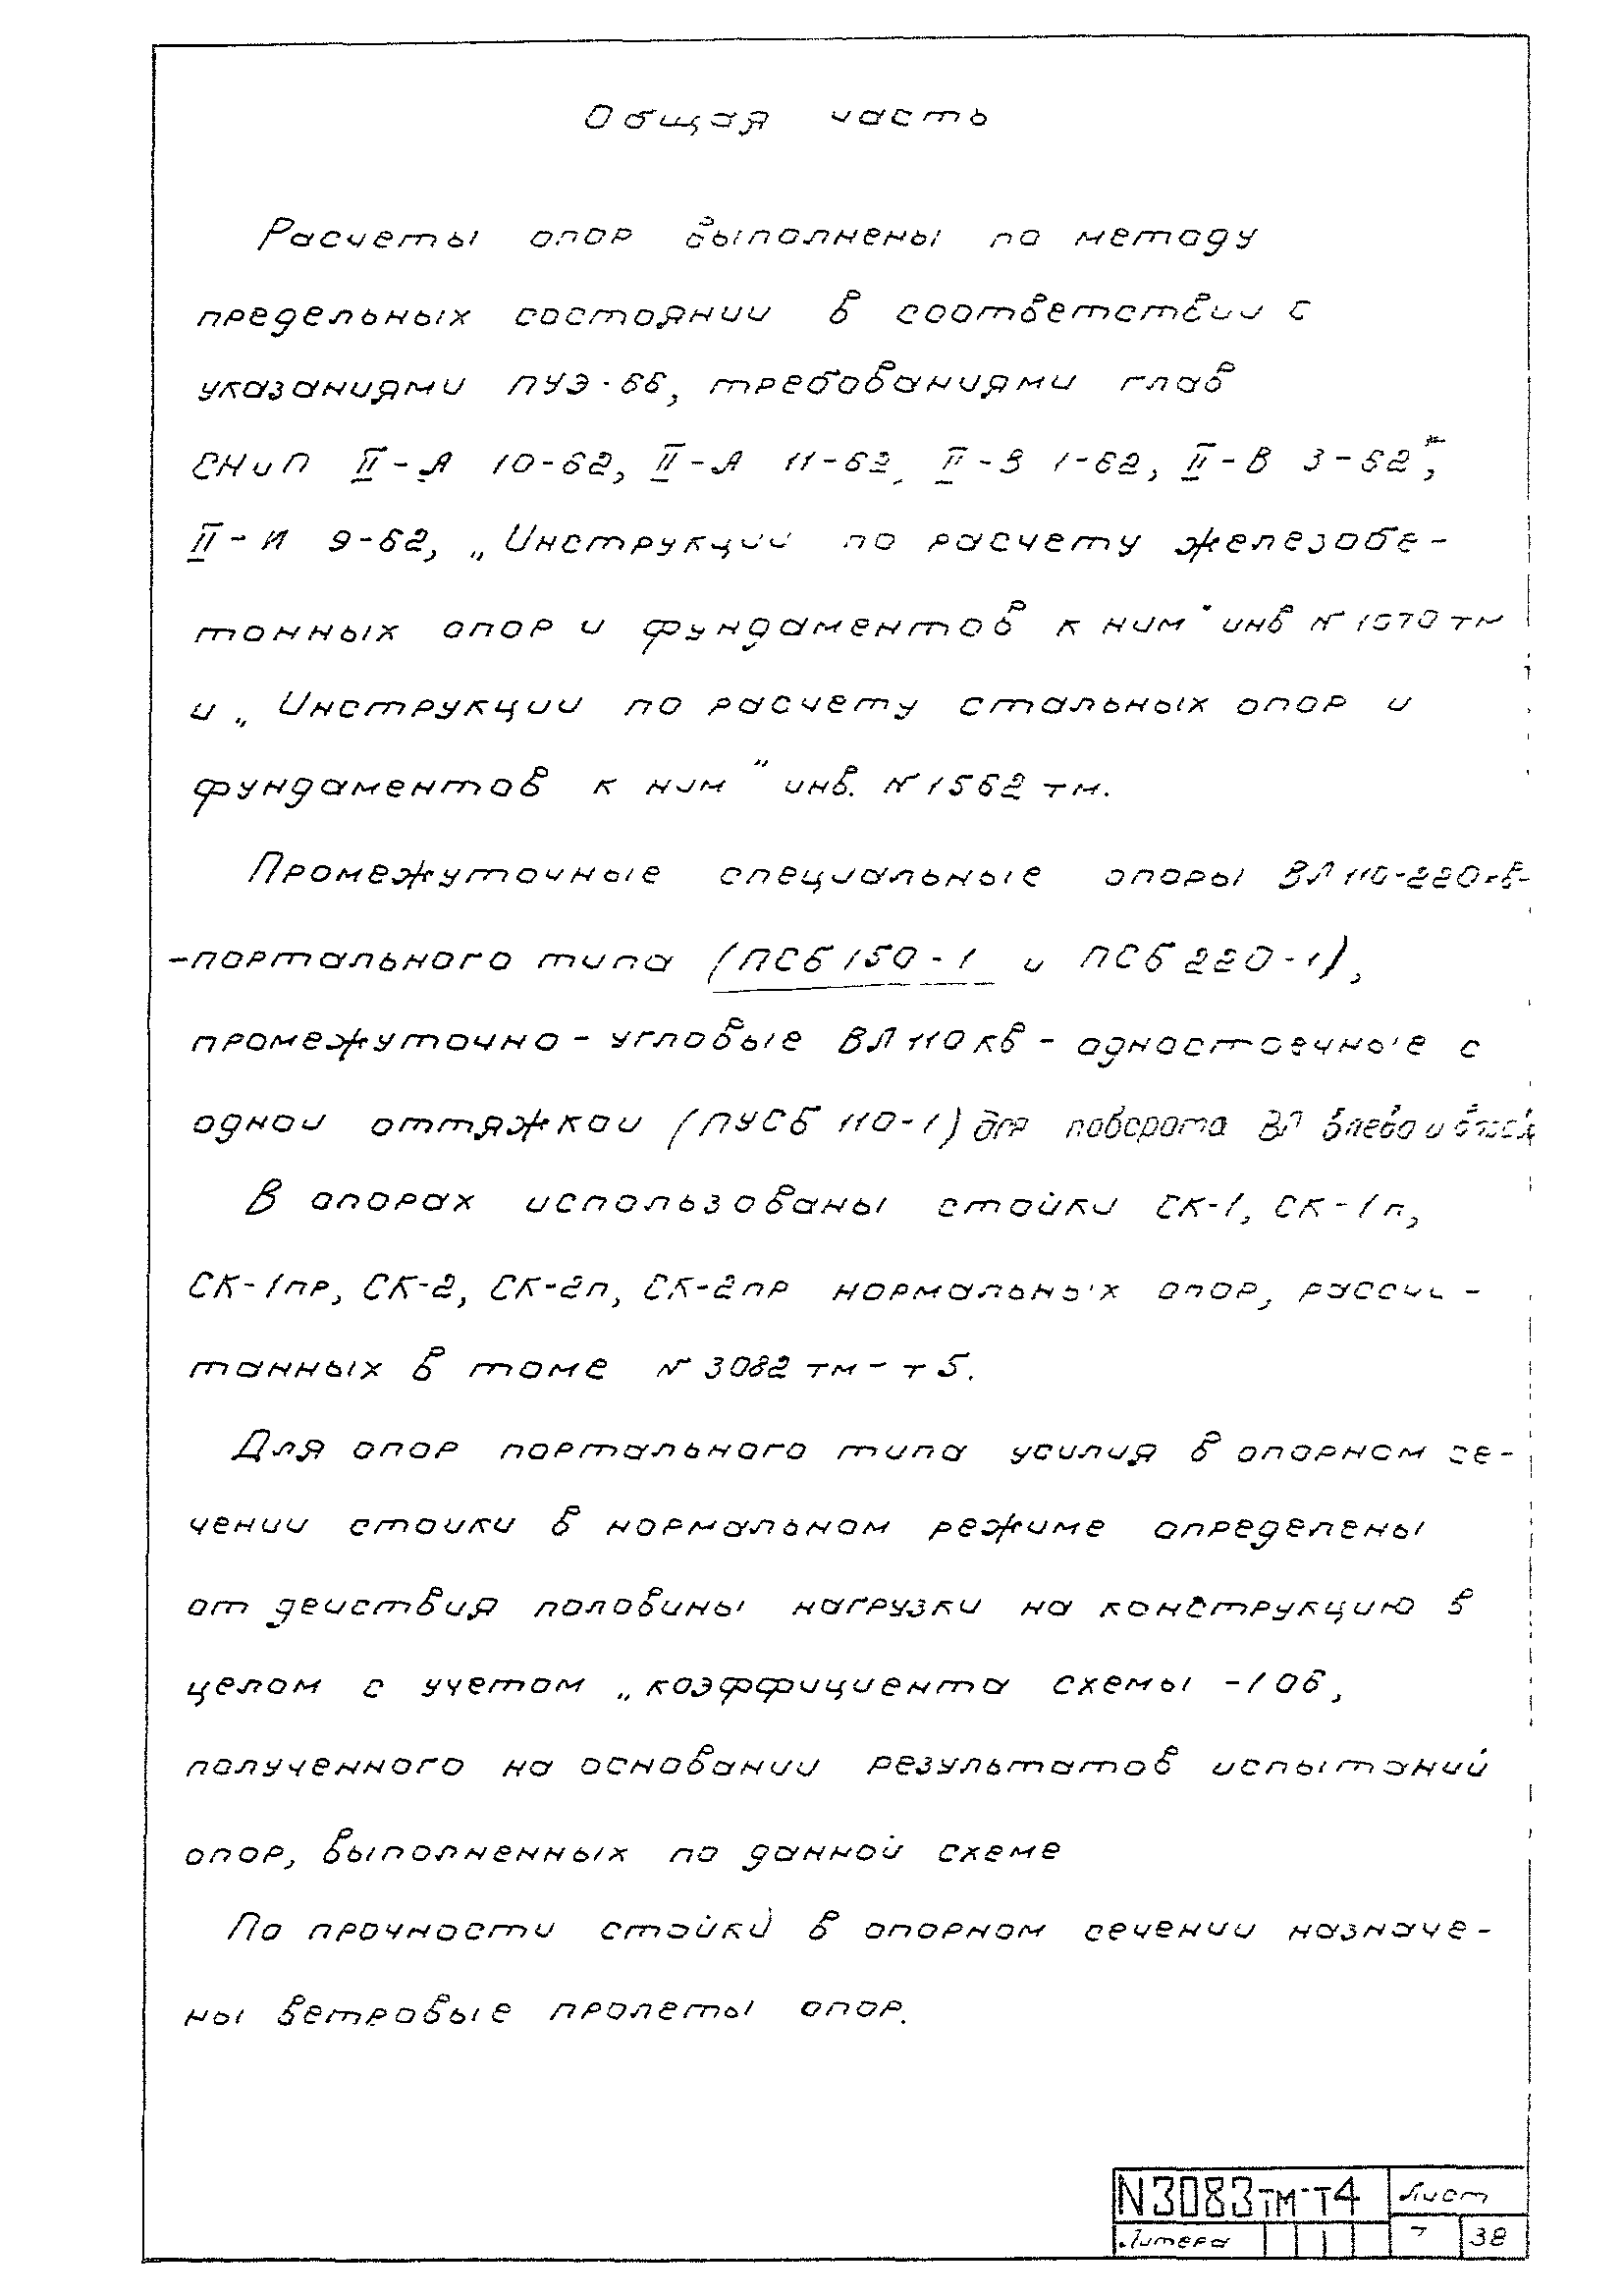 Общая часть
Расчеты опор выполнены по методу
предельных состоянии в соответствии с
указаниями ПУЭ-66, требованиями глав
СНиП II-А 10-62, II-А 11-62, II-В 1-62, II-В 3-62*,
II-И 9-62, „Инструкции по расчету железобе-
тонных опор и фундаментов к ним" инв N 1070 тм
и „Инструкции по расчету стальных опор и
фундаментов к ним" инв. N 1562 тм.
Промежуточные специальные опоры ВЛ 110-220кв-
-портального типа (ПСБ 150-1 и ПСБ 220-1),
промежуточно-угловые ВЛ 110 кв - одностоечные с
одной оттяжкой (ПУСБ 110-1) для поворота ВЛ влево и
В опорах использованы стойки СК-1, СК-1п,
СК-1пр, СК-2, СК-2п, СК-2пр нормальных опор, рассчи-
танных в томе N 3082 тм-т 5.
Для опор портального типа усилия в опорном се-
чении стоики в нормальном режиме определены
от деиствия половины нагрузки на конструкцию в
целом с учетом „коэффициента схемы -1 06,
полученного на основании результатов испытаний
опор, выполненных по данной схеме
По прочности стойки в опорном сечении назначе-
ны ветровые пролеты опор.
N3083тм-т4 Лист
Литера 7 38